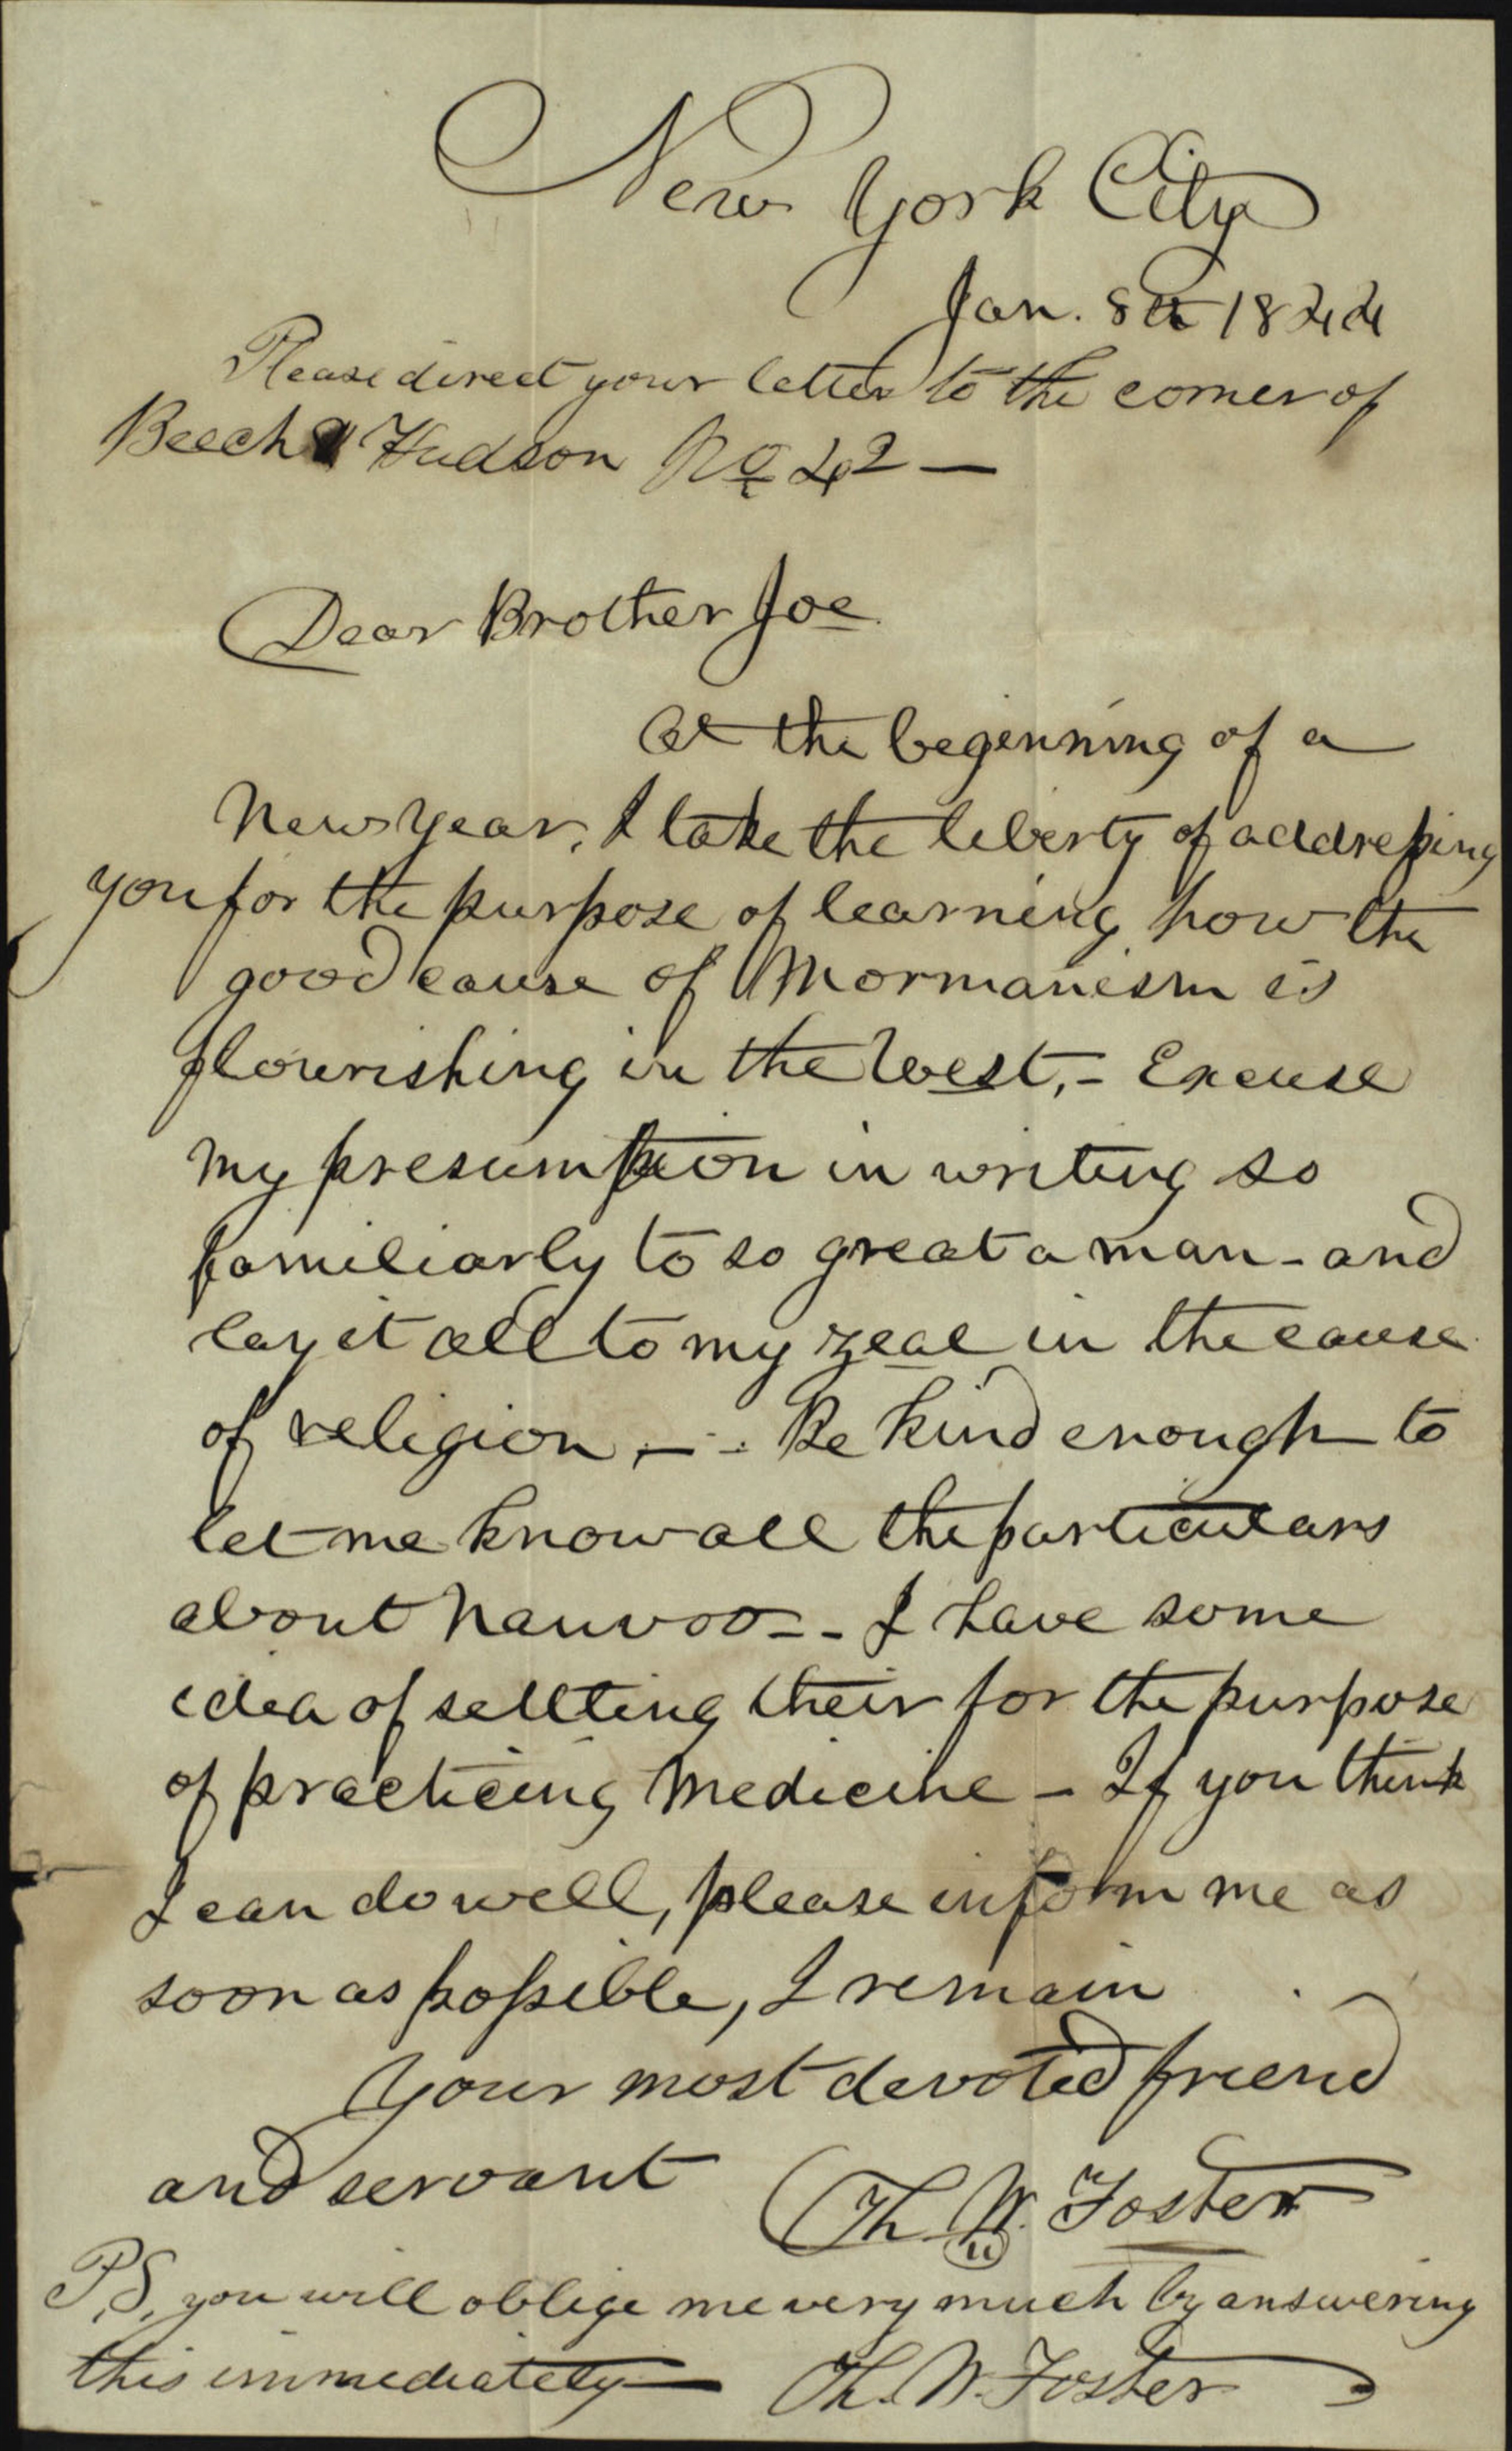 New York City
Jan. 8th 1844
Please direct your letter to the corner of
Beech & Hudson No 42 —
Dear Brother Joe.
At the beginning of a
New Year, I take the liberty of addressing
you for the purpose of learning how the
good cause of Mormanism is
flourishing in the West, - Excuse
my presumption in writing so
familiarly to so great a man - and
lay it all to my zeal in the cause
of religion, — . Be kind enough to
let me know all the particulars
about Nauvoo - - I have some
idea of settling their for the purpose
of practicing Medicine — If you think
I can do well, please inform me as
soon as possible, I remain
Your most devoted friend
and servant Th. W. Foster
P.S. you will oblige me very much by answering
this immediately — Th. W. Foster